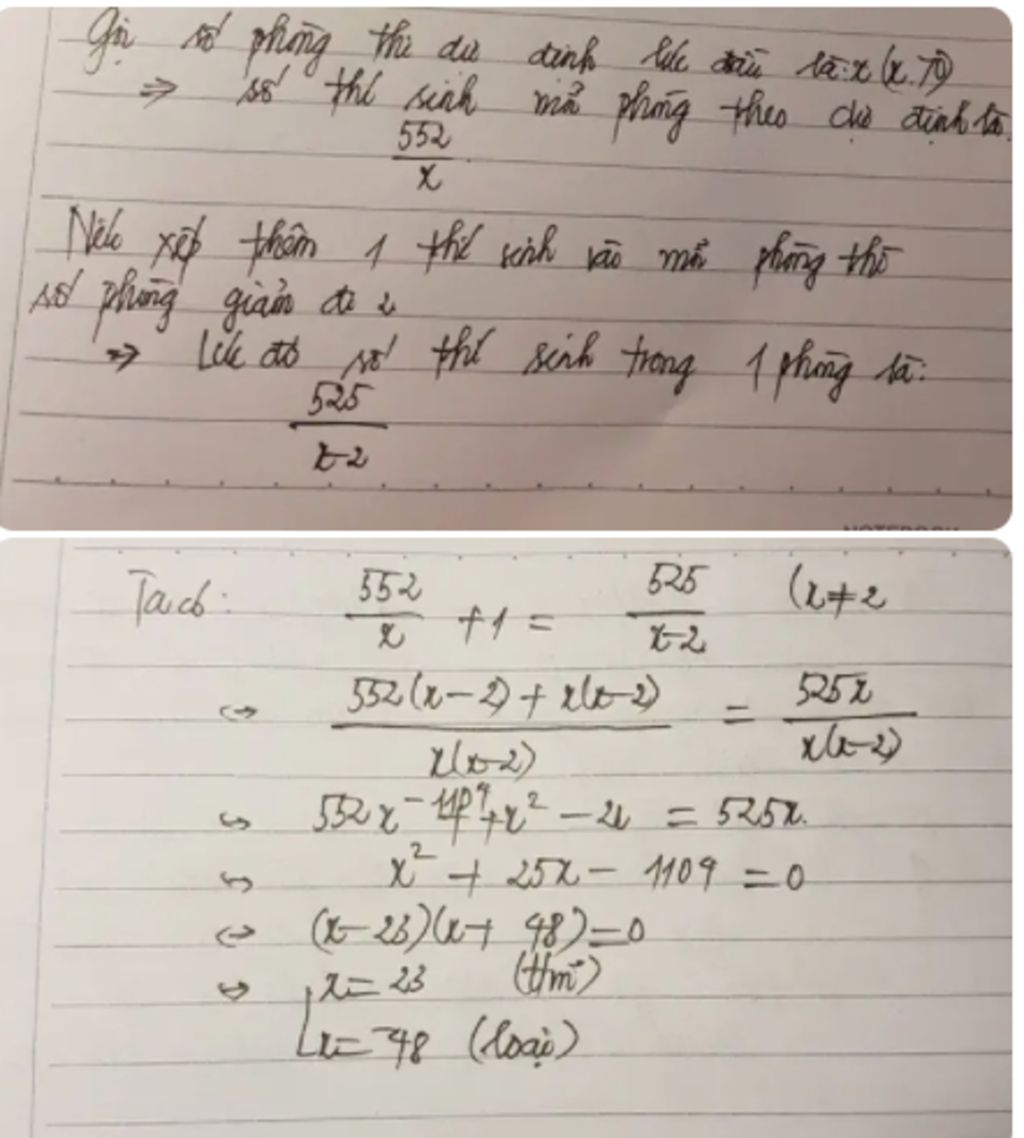 Gọi số phòng thi dự định lúc đầu là: x (x>0)
⇒ số thí sinh mỗi phòng theo dự định là
552/x
Nếu xếp thêm 1 thí sinh vào mỗi phòng thì
số phòng giảm đi 2
⇒ Lúc đó số thí sinh trong 1 phòng là:
525/x-2
NOTEBOOK
Ta có: 552/x + 1 = 525/x-2 (x≠2
⇔ 552(x-2) + x(x-2)/x(x-2) = 525x/x(x-2)
⇔ 552x - 1104 + x² - 2x = 525x.
⇔ x² + 25x - 1104 = 0
⇔ (x-23)(x+48)=0
⇔ x=23 (t/m)
x=-48 (loại)